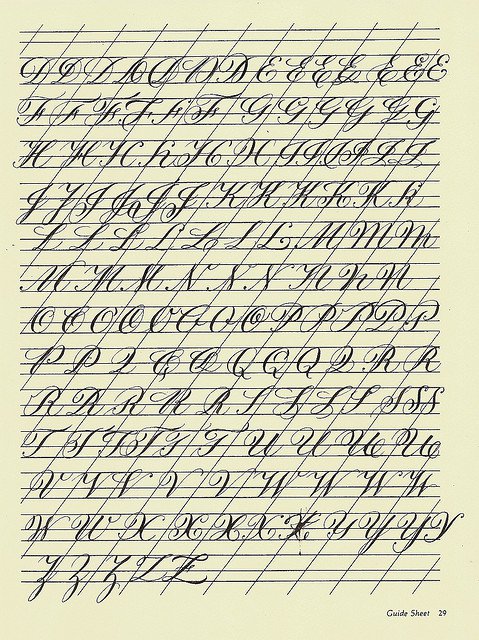 D D D D D D D E E E E E E E
F F F F F F G G G G G G
H H H H H H I I I I I I
J J J J J J K K K K K K
L L L L L L L M M M
M M M N N N N N N
O O O O O O O O P P P P P
P P Q Q Q Q Q Q Q R R
R R R R R S S S S S S S
T T T T T T U U U U
V V V V V W W W W
W W X X X X X Y Y Y Y
Z Z Z Z Z
Guide Sheet 29